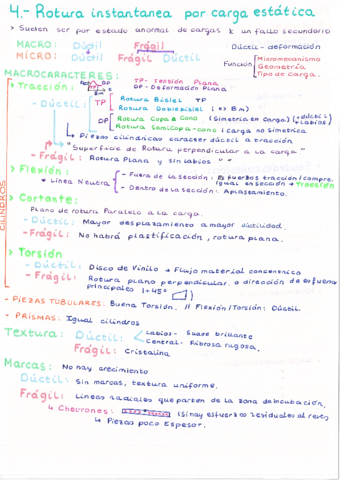 4.- Rotura instantanea por carga estática
> Suelen ser por estado anormal de cargas x un fallo secundario
MACRO: Dúctil Frágil Dúctil - deformación
MICRO: Dúctil Frágil Dúctil Frágil
Función Micromecanismo
Geometría
Tipo de carga.
MACROCARACTERES:
> Tracción: TP- Tensión Plana
DP- Deformación Plana
- Dúctil: TP Rotura Bisiel TP
Rotura Doble bisiel
DP Rotura Copa & Cono (Simetria en Carga) (+dúctil) (+Labios)
Rotura Semicopa-cono / Carga no Simetrica
↳ Piezas cilíndricas carácter dúctil a tracción
"Superficie de Rotura perpendicular a la carga"
- Frágil: Rotura Plana y sin labios " "
> Flexión:
* Linea Neutra - Fuera de la Sección: Esfuerzos tracción/compre. Igual en sección → Tracción
- Dentro de la sección: Aplastamiento.
CILINDROS
> Cortante:
Plano de rotura Paralelo a la carga.
- Dúctil: Mayor desplazamiento a mayor ductilidad.
- Frágil: No habrá plastificación, rotura plana.
> Torsión
- Dúctil: Disco de Vinilo → Flujo material concentrico
- Frágil: Rotura plano perpendicular a dirección de esfuerzo
principales 1+45°
- PIEZAS TUBULARES: Buena Torsión. // Flexión/Torsión: Dúctil.
- PRISMAS: Igual cilindros
Textura: Dúctil: Labios- Suave brillante
Central- Fibrosa rugosa.
Frágil: Cristalina
Marcas: No hay crecimiento
Dúctil: Sin marcas, textura uniforme.
Frágil: Lineas radiales que parten de la zona de incubación.
↳ Chevrones: (Si hay esfuerzo residuales al reves)
↳ Piezas poco Espesor.